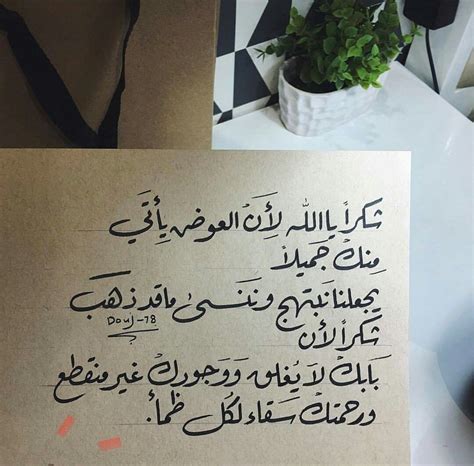 شكراً يا الله لِأَنَ العوض يأتَي
مِنكْ جَميلاً
يجعلنا نَبتهج ونَنَسىٰ ما قد ذهَب
Douj-78
شكراً لأن
بَابكْ لاَ يُغلق وَوَجودكْ غير منقطع
ورحمتكْ سَقاء لكُل ظمأ.